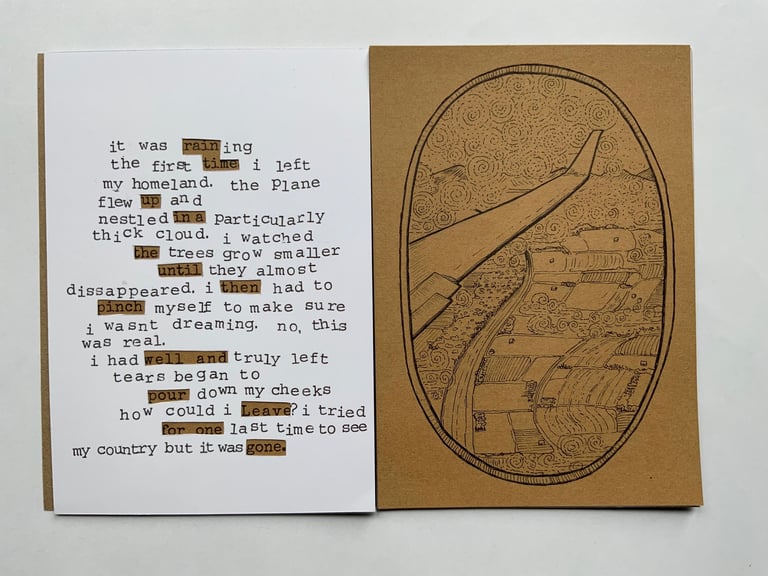 it was raining
the first time i left
my homeland. the plane
flew up and
nestled in a particularly
thick cloud. i watched
the trees grow smaller
until they almost
dissappeared. i then had to
pinch myself to make sure
i wasnt dreaming. no, this
was real.
i had well and truly left
tears began to
pour down my cheeks
how could i Leave? i tried
for one last time to see
my country but it was gone.